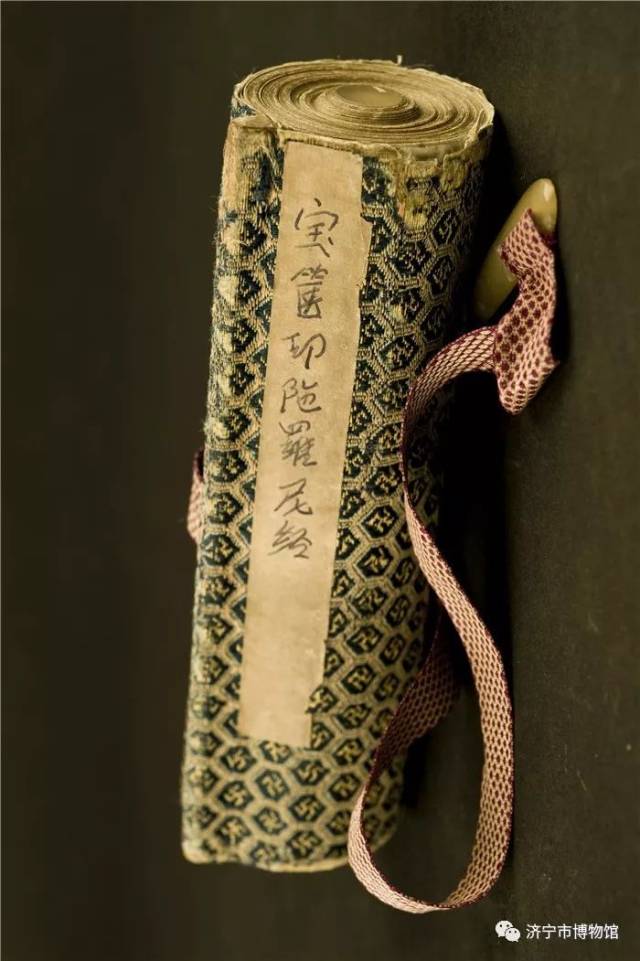 宝箧印陀羅尼经
济宁市博物馆